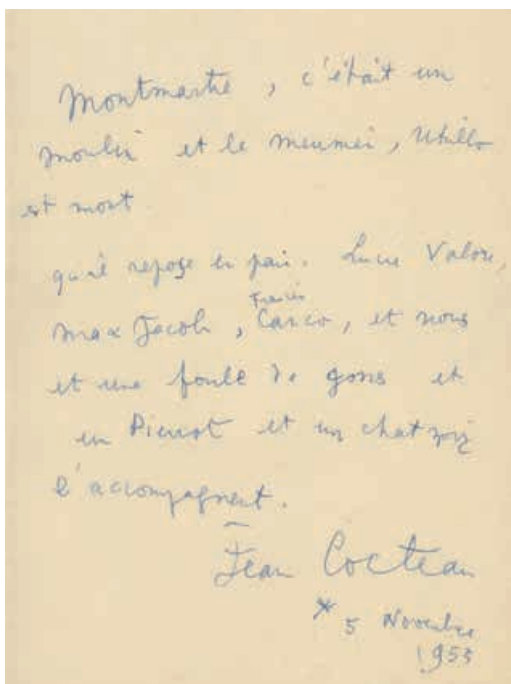 Montmartre, c'était un
moulin et le meunier, Utrillo
est mort.
qu'il repose en paix. Lucie Valore,
Francis
Max Jacob, Carco, et nous
et une foule de gens et
un Pierrot et un chat noir
l'accompagnent.
Jean Cocteau
* 5 Novembre
1955